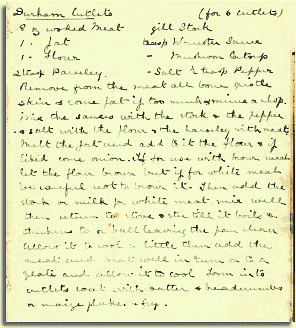 Durham Cutlets (for 6 cutlets)
8 oz cooked Meat gill Stock
1 - fat teasp Worcester Sauce
1 - Flour - Mushroom Catsup
2 teasp Parsley. - Salt ½ teasp Pepper
Remove from the meat all bone gristle
skin & some fat if too much & mince or chop.
Mix the sauces with the stock & the pepper
& salt with the flour & the parsley with meat
Melt the fat and add to it the flour & if
liked some onion. If for use with brown meat
let the flour brown but if for white meat
be careful not to brown it. Then add the
stock or milk for white meat, mix well
then return to stove & stir till it boils &
thickens to a ball leaving the pan clean
allow it to cool a little then add the
meat and beat well in turn on to a
plate and allow it to cool form into
cutlets coat with batter & breadcrumbs
or maize flake. & fry.